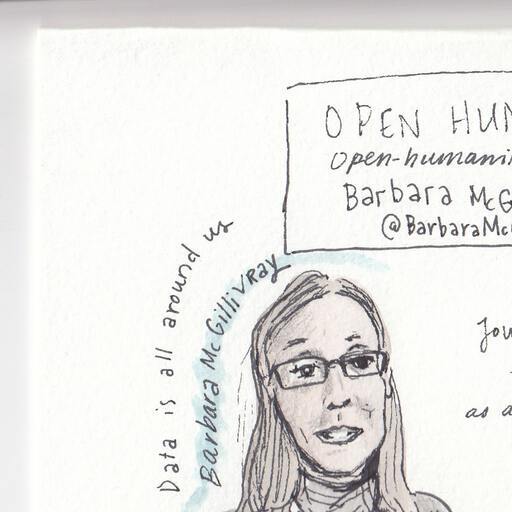 OPEN HUM
open-humani
Barbara McG
@BarbaraMc
Data is all around us
Barbara McGillivray
Jou
as a